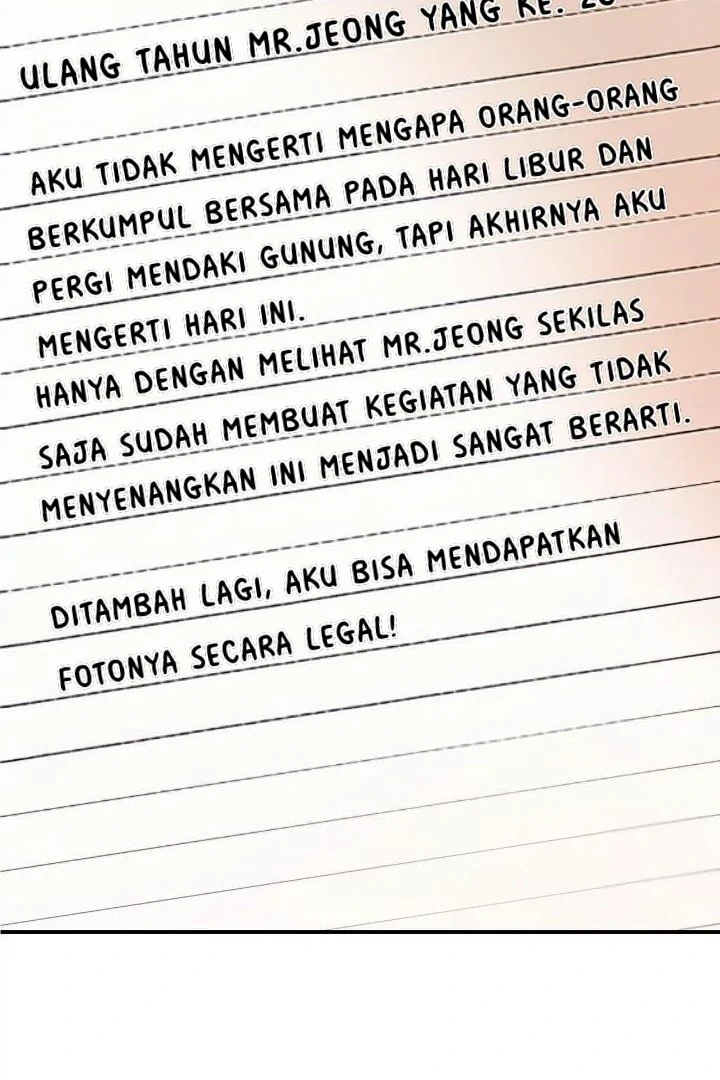 ULANG TAHUN MR.JEONG YANG KE.
AKU TIDAK MENGERTI MENGAPA ORANG-ORANG
BERKUMPUL BERSAMA PADA HARI LIBUR DAN
PERGI MENDAKI GUNUNG, TAPI AKHIRNYA AKU
MENGERTI HARI INI.
HANYA DENGAN MELIHAT MR.JEONG SEKILAS
SAJA SUDAH MEMBUAT KEGIATAN YANG TIDAK
MENYENANGKAN INI MENJADI SANGAT BERARTI.
DITAMBAH LAGI, AKU BISA MENDAPATKAN
FOTONYA SECARA LEGAL!